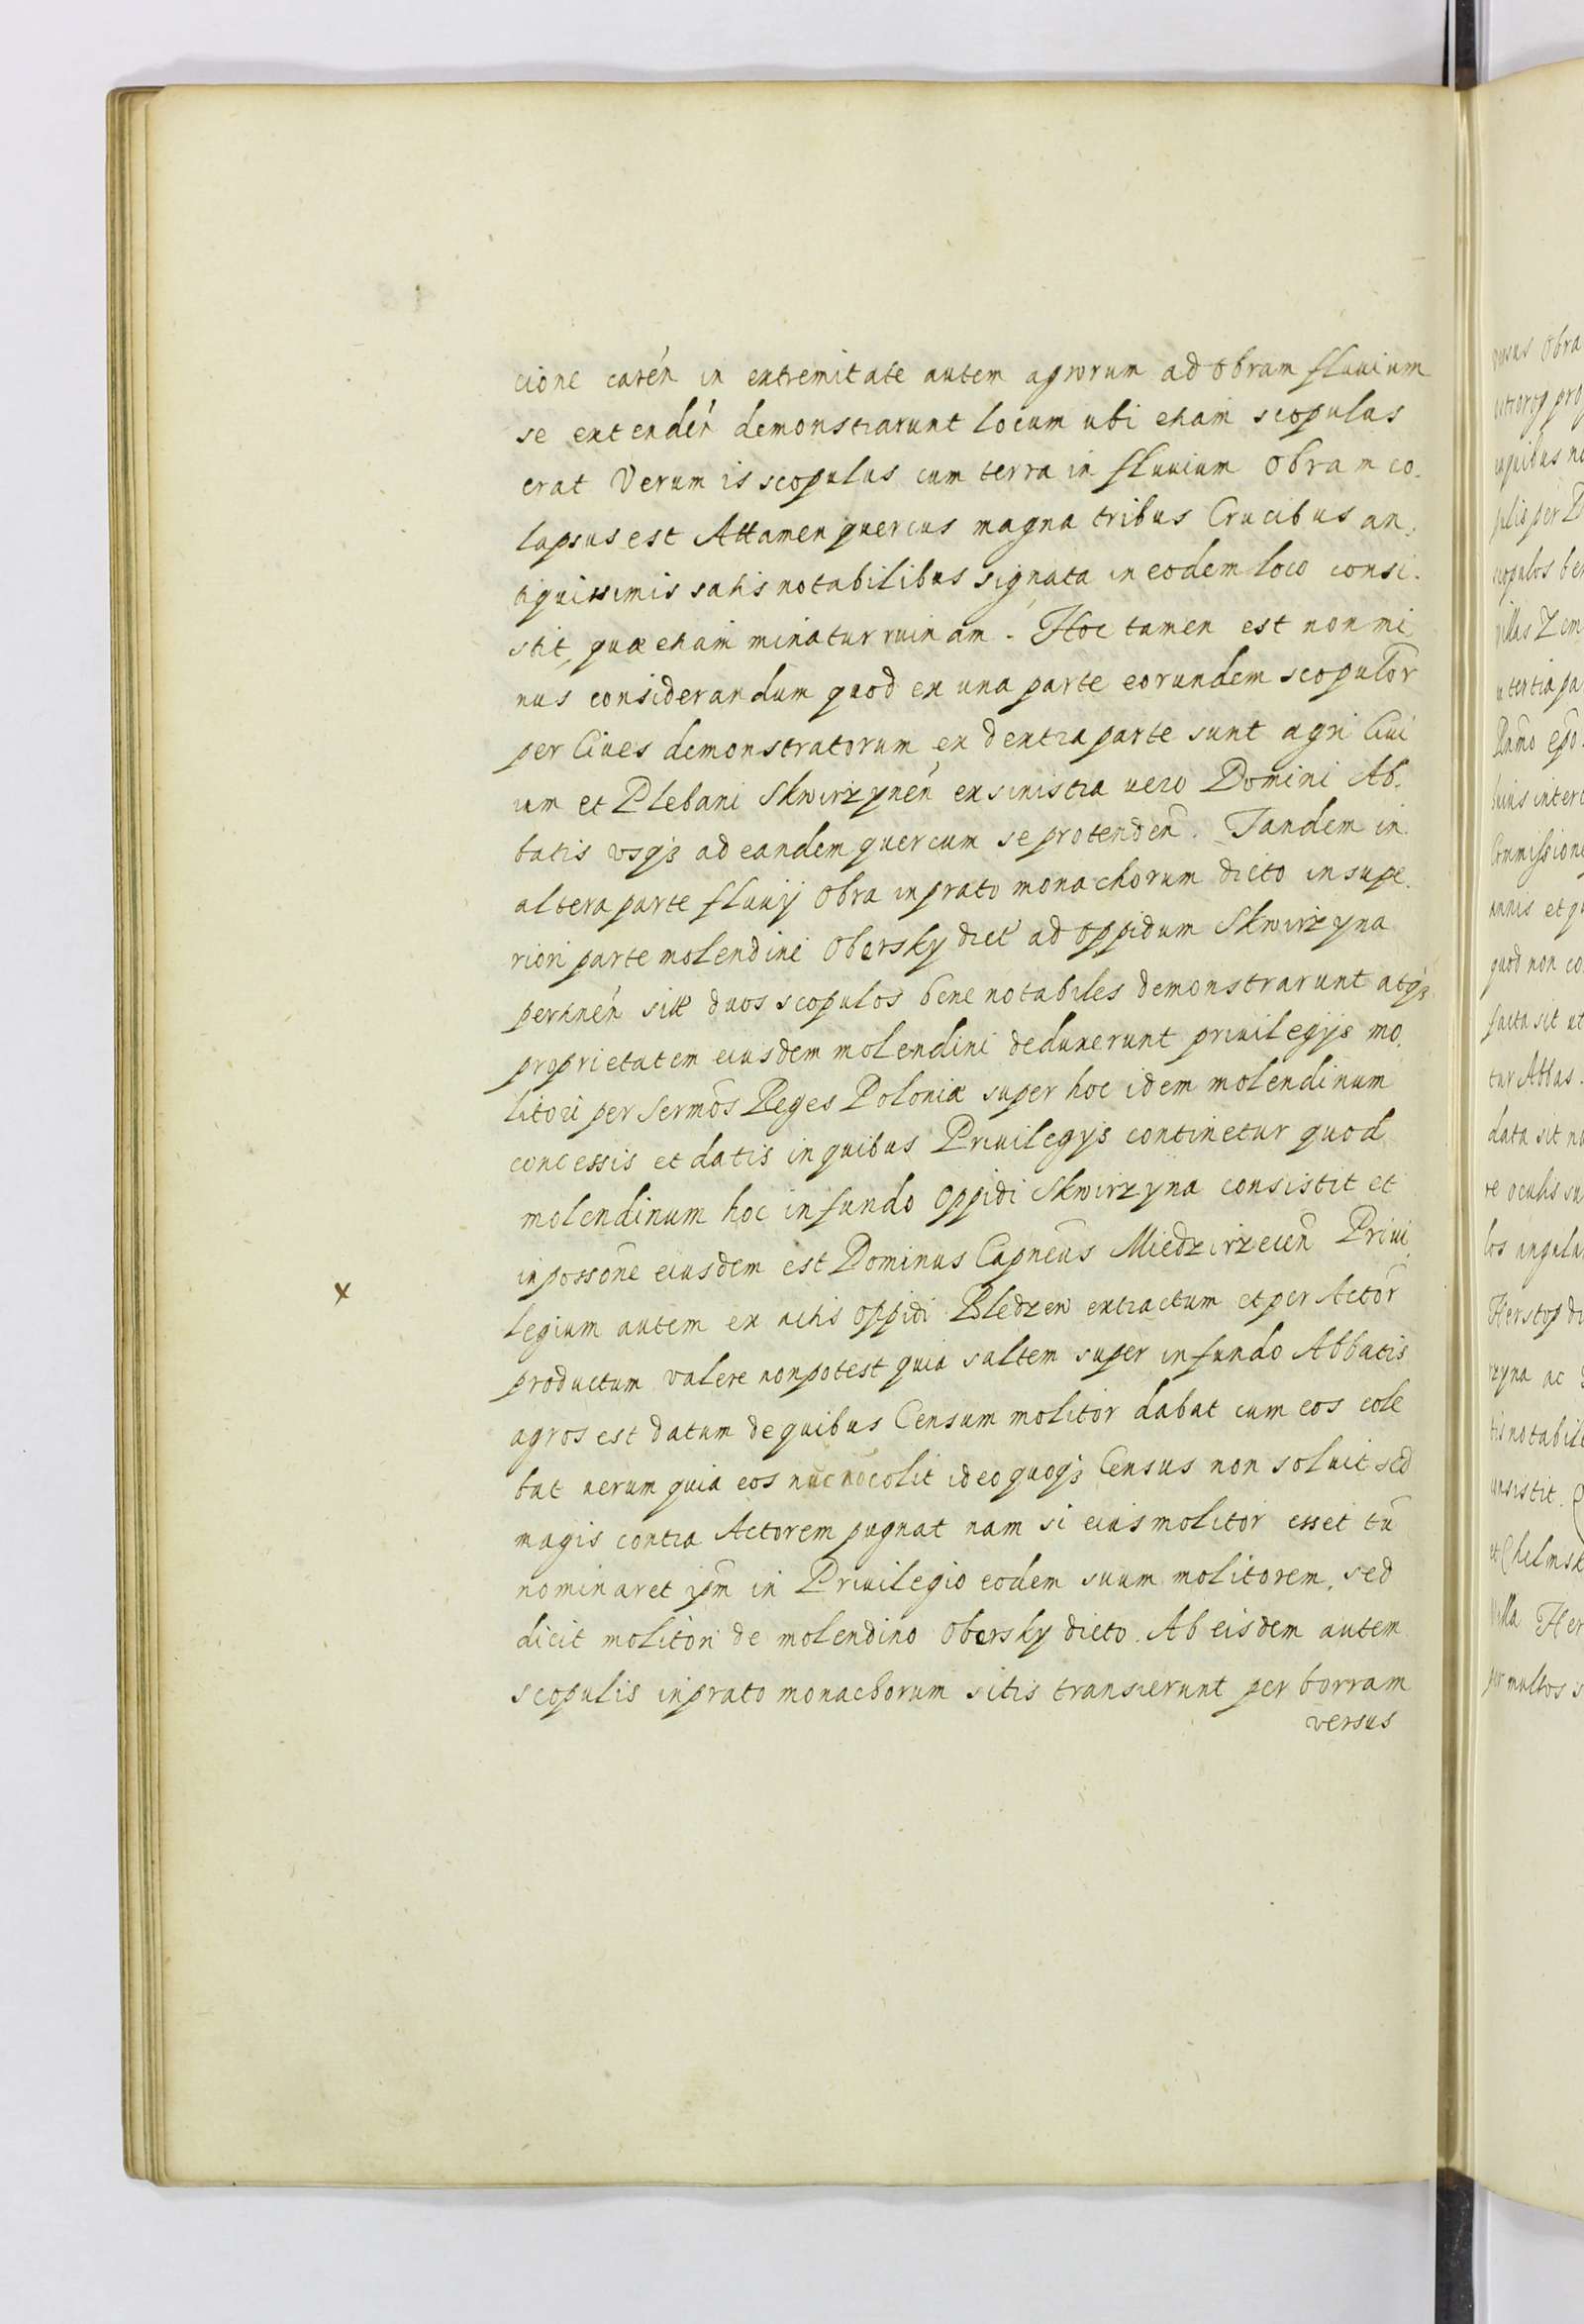 cione carén in extremitate autem agrorum ad Obram fluuium
se extendén demonstrarunt locum ubi etiam scopulus
erat Verum is scopulus cum terra in fluuium Obram co.
lapsus est Attamen quercus magna tribus Crucibus an.
tiquissimis satis notabilibus signata in eodem loco consi.
stit, quæ etiam minatur ruinam. Hoc tamen est non mi
nus considerandum quod ex una parte eorundem scopulor̃
per Ciues demonstratorum ex dextra parte sunt agri Ciui
um et Plebani Skwirzynén ex sinistra uero Domini Ab.
batis vsq3 ad eandem quercum se protendeñ. Tandem in
altera parte fluuij Obra in prato monachorum dicto in supe.
riori parte molendini Obersky dict ad oppidum Skwirzyna
pertinén sitæ duos scopulos bene notabiles demonstrarunt atq3
proprietatem eiusdem molendini deduxerunt priuilegijs mo.
litori per Sermõs Reges Poloniæ super hoc idem molendinum
concessis et datis in quibus Priuilegijs continetur quod
molendinum hoc in fundo Oppidi Skwirzyna consistit et
in possoñe eiusdem est Dominus Capneũs Miedzirzecen̄ Priui.
legium autem ex actis oppidi Bledzew extractum et per Actor̃
productum valere non potest quia saltem super in fundo Abbatis
agros est datum de quibus Censum molitor dabat cum eos cole
bat uerum quia eos nũc nõ colit ideo quoq3 Census non soluit sed
magis contra Actorem pugnat nam si eius molitor esset tũ
nominaret ipm̃ in Priuilegio eodem suum molitorem, sed
dicit molitori de molendino Obersky dicto. Ab eisdem autem
scopulis in prato monachorum sitis transierunt per borram
versus
x